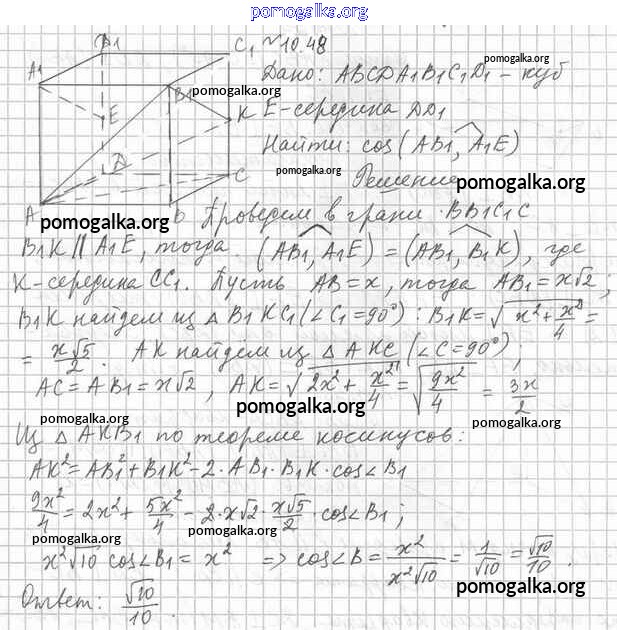 pomogalka.org
D1
C1 № 10.48
pomogalka.org
A1
Дано: ABCDA1B1C1D1 – куб
B1
pomogalka.org
E
K E – середина DD1
Найти: cos(AB1, A1E)
D
C
pomogalka.org
Решение
pomogalka.org
A
B
pomogalka.org
Проведем в грани BB1C1C
B1K || A1E, тогда (AB1, A1E) = (AB1, B1K), где
K – середина CC1. Пусть AB = x, тогда AB1 = x√2;
pomogalka.org
B1K найдем из △ B1KC1 (∠C1 = 90°): B1K = √(x² + x²/4) =
= x√5/2. AK найдем из △ AKC (∠C = 90°);
AC = AB1 = x√2, AK = √(2x² + x²/4) = √(9x²/4) = 3x/2
pomogalka.org
pomogalka.org
pomogalka.org
Из △ AKB1 по теореме косинусов:
AK² = AB1² + B1K² – 2·AB1·B1K·cos∠B1
pomogalka.org
9x²/4 = 2x² + 5x²/4 – 2·x√2·x√5/2·cos∠B1;
pomogalka.org
x²√10 cos∠B1 = x² => cos∠B = x²/x²√10 = 1/√10 = √10/10.
pomogalka.org
Ответ: √10/10.
pomogalka.org